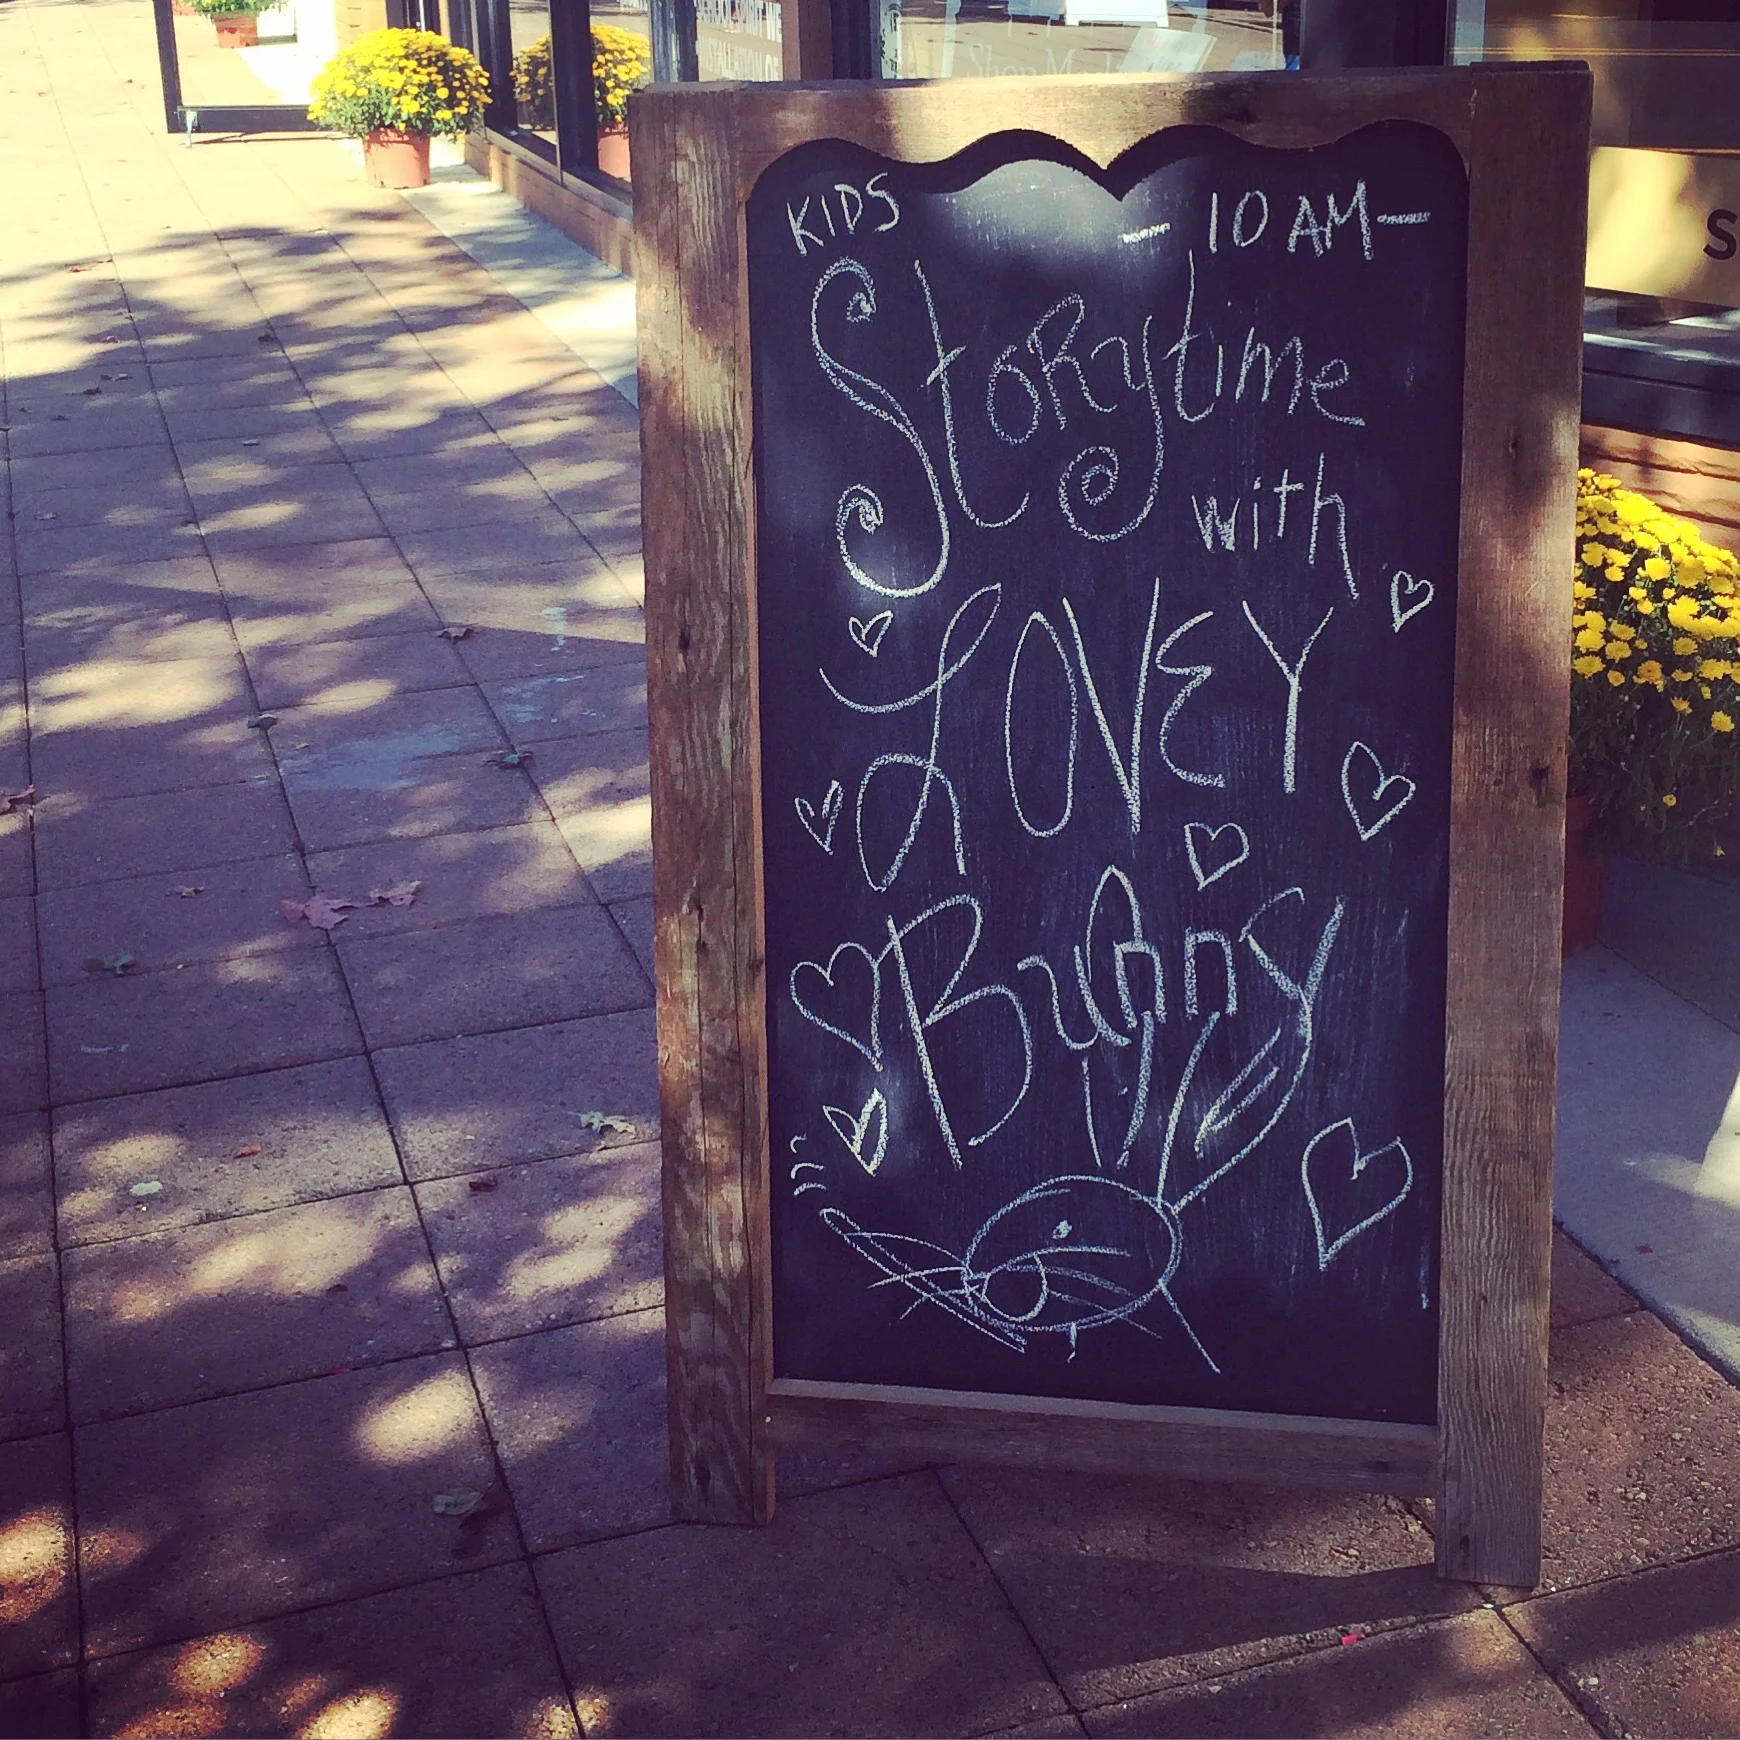 KIDS - 10 AM-
Storytime
with
LOVEY
Bunny
Shop
S